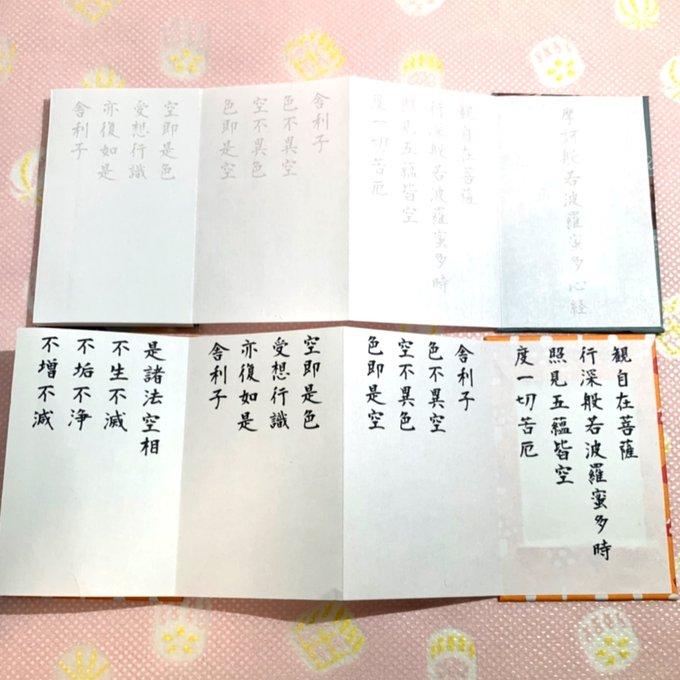 摩訶般若波羅蜜多心経
観自在菩薩
行深般若波羅蜜多時
照見五蘊皆空
度一切苦厄
舎利子
色不異空
空不異色
色即是空
空即是色
受想行識
亦復如是
舎利子
観自在菩薩
行深般若波羅蜜多時
照見五蘊皆空
度一切苦厄
舎利子
色不異空
空不異色
色即是空
空即是色
受想行識
亦復如是
舎利子
是諸法空相
不生不滅
不垢不浄
不増不減